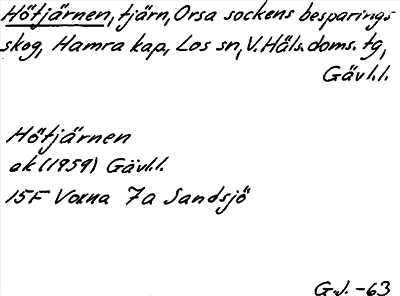 Hötjärnen, tjärn, Orsa sockens besparings-
skog, Hamra kap, Los sn, V. Häls. doms. tg,
Gävl.l.
Hötjärnen
ek (1959) Gävl.l.
15F Voxna 7a Sandsjö
G.J. -63